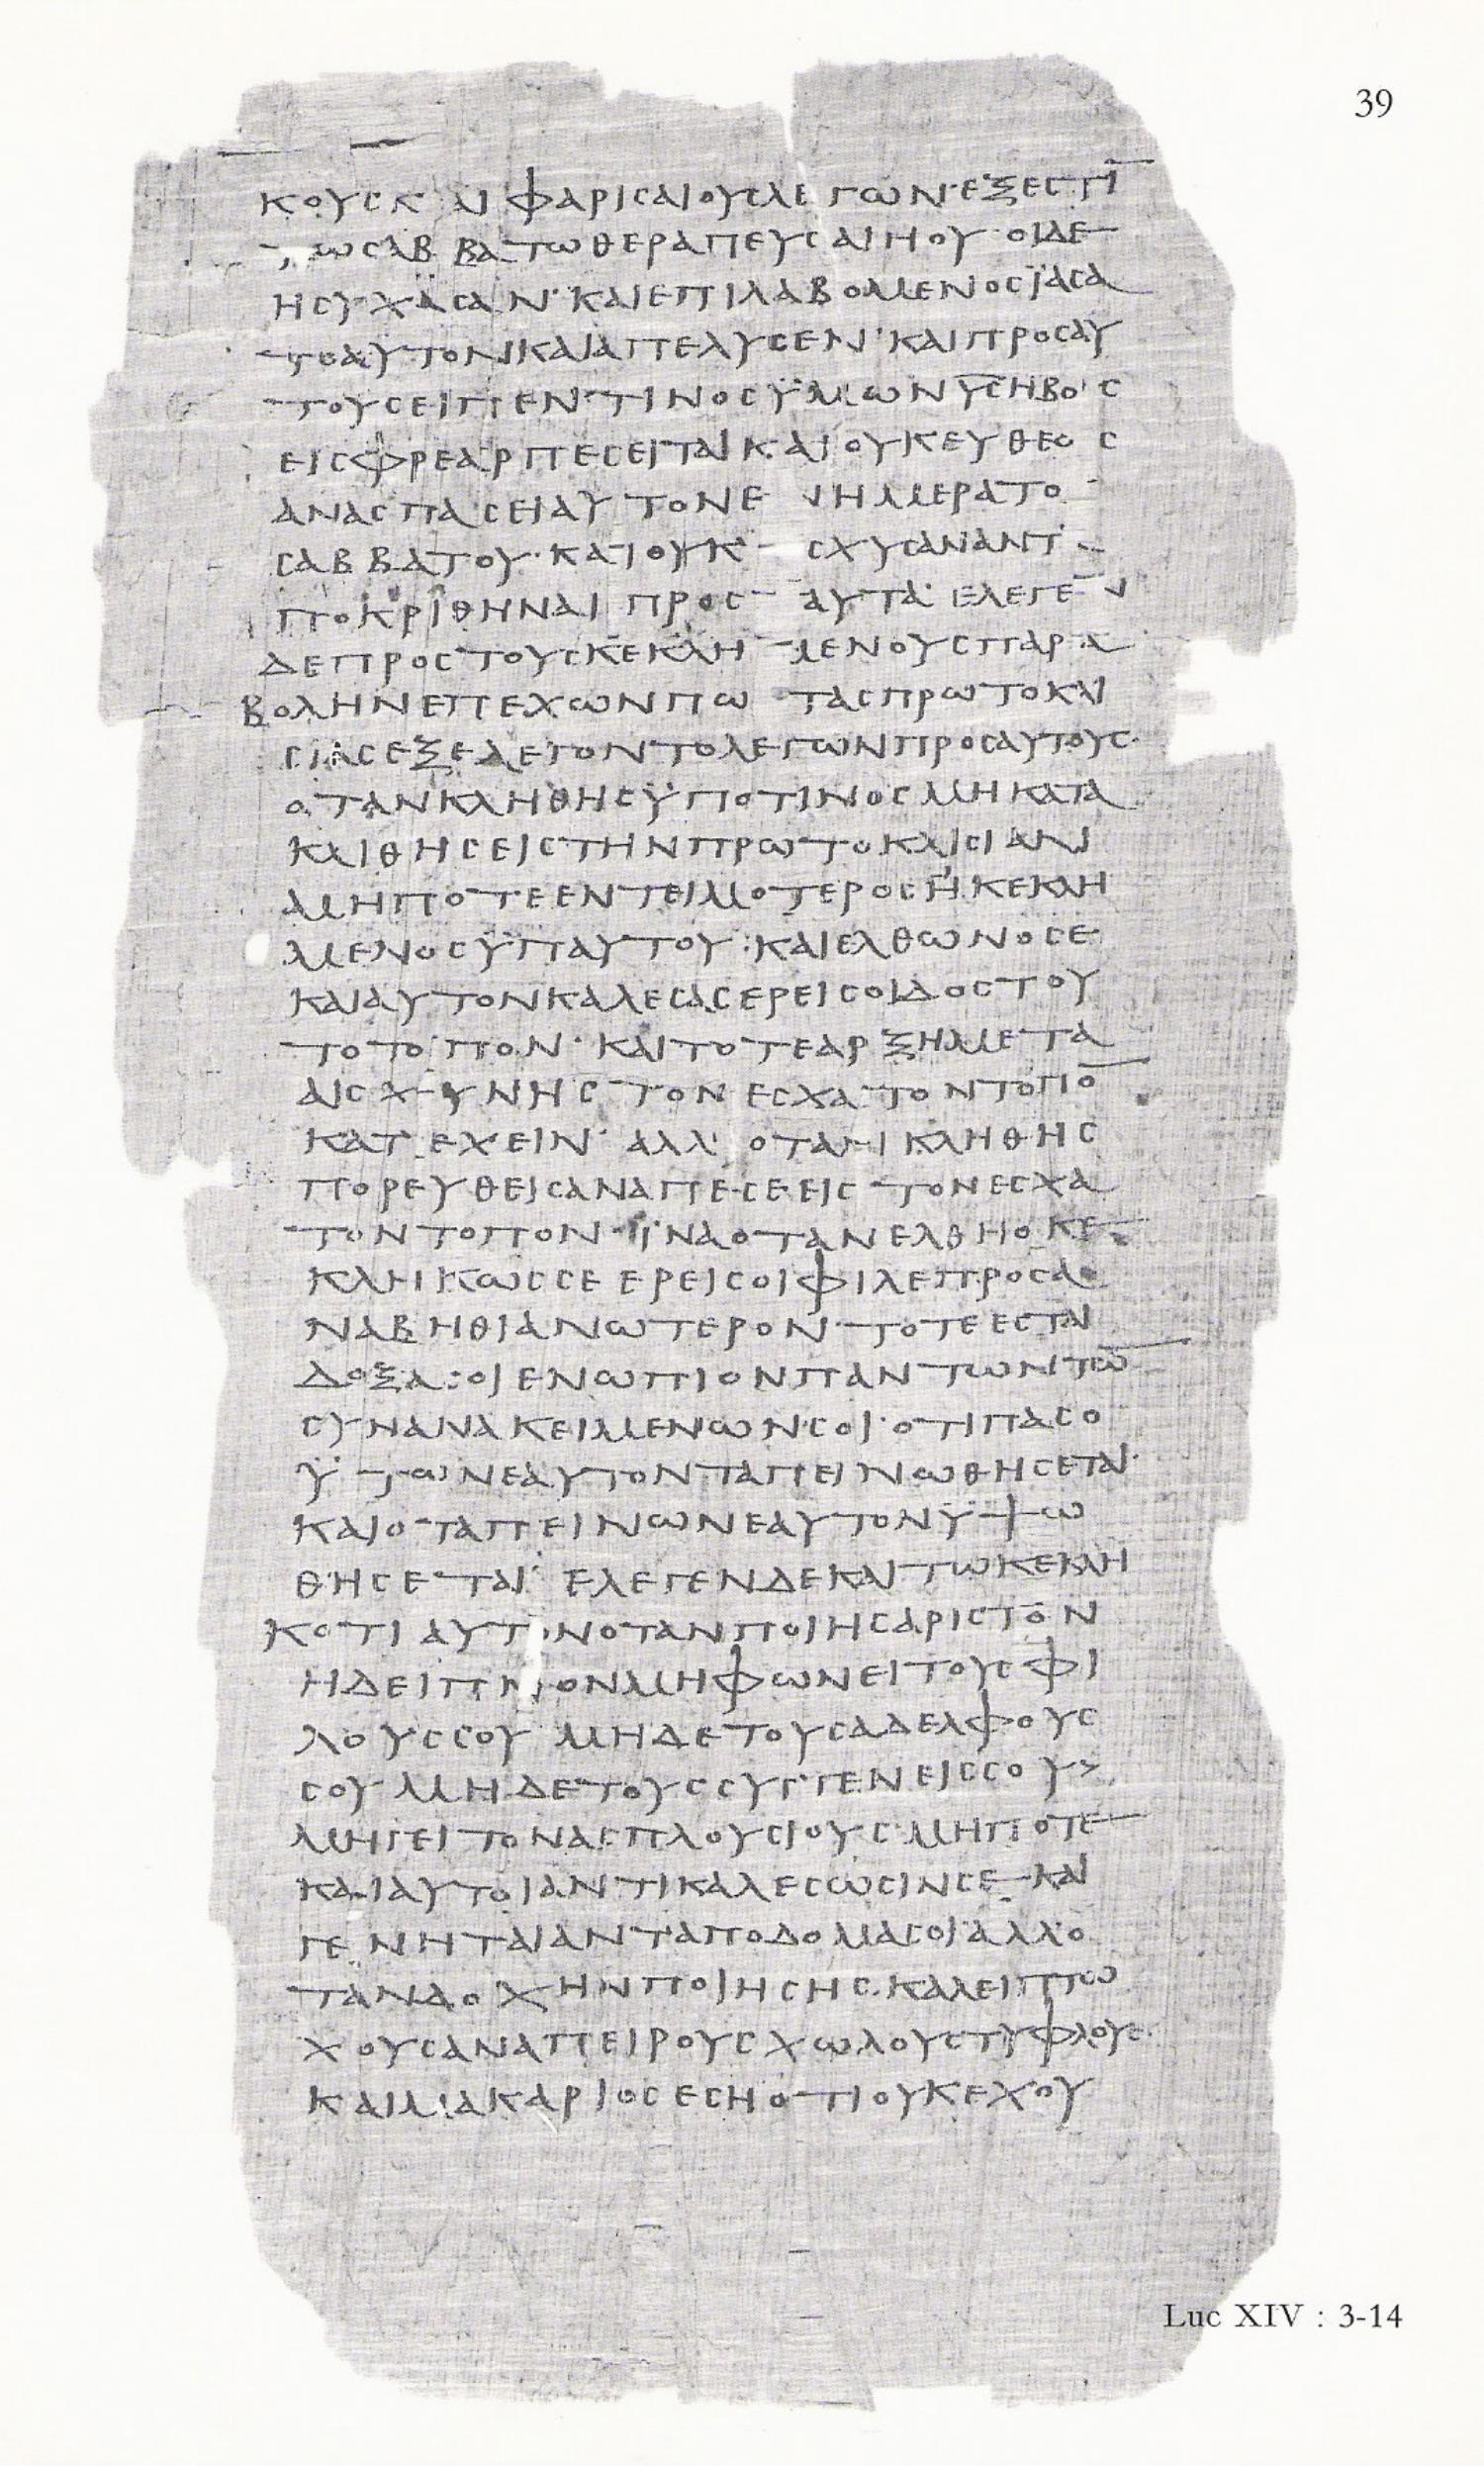 39
ΚΟΥΣ ΚΑΙ ΦΑΡΙΣΑΙΟΥΣ ΛΕΓΩΝ ΕΞΕΣΤΙ̅
ΤΩ ΣΑΒΒΑΤΩ ΘΕΡΑΠΕΥΣΑΙ Η ΟΥ ΟΙ ΔΕ
ΗΣΥΧΑΣΑΝ· ΚΑΙ ΕΠΙΛΑΒΟΜΕΝΟΣ ΪΑΣΑ
ΤΟ ΑΥΤΟΝ ΚΑΙ ΑΠΕΛΥΣΕΝ· ΚΑΙ ΠΡΟΣ ΑΥ
ΤΟΥΣ ΕΙΠΕΝ· ΤΙΝΟΣ ΫΜΩΝ Υ̅Σ̅ Η ΒΟΥΣ
ΕΙΣ ΦΡΕΑΡ ΠΕΣΕΙΤΑΙ ΚΑΙ ΟΥΚ ΕΥΘΕΩΣ
ΑΝΑΣΠΑΣΕΙ ΑΥΤΟΝ ΕΝ ΗΜΕΡΑ ΤΟ
ΣΑΒΒΑΤΟΥ· ΚΑΙ ΟΥΚ ΣΧΥΣΑΝ ΑΝΤ
ΠΟΚΡΙΘΗΝΑΙ ΠΡΟΣ ΤΑΥΤΑ· ΕΛΕΓΕΝ
ΔΕ ΠΡΟΣ ΤΟΥΣ ΚΕΚΛΗΜΕΝΟΥΣ ΠΑΡΑ
ΒΟΛΗΝ ΕΠΕΧΩΝ ΠΩ ΤΑΣ ΠΡΩΤΟΚΛΙ
ΣΙΑΣ ΕΞΕΛΕΓΟΝΤΟ ΛΕΓΩΝ ΠΡΟΣ ΑΥΤΟΥΣ·
ΟΤΑΝ ΚΛΗΘΗΣ ΫΠΟ ΤΙΝΟΣ ΜΗ ΚΑΤΑ
ΚΛΙΘΗΣ ΕΙΣ ΤΗΝ ΠΡΩΤΟΚΛΙΣΙΑΝ
ΜΗΠΟΤΕ ΕΝΤΕΙΜΟΤΕΡΟΣ ΣΟΥ Η ΚΕΚΛΗ
ΜΕΝΟΣ ΫΠ ΑΥΤΟΥ· ΚΑΙ ΕΛΘΩΝ Ο ΣΕ
ΚΑΙ ΑΥΤΟΝ ΚΑΛΕΣΑΣ ΕΡΕΙ ΣΟΙ ΔΟΣ ΤΟΥ
ΤΟ ΤΟΠΟΝ· ΚΑΙ ΤΟΤΕ ΑΡΞΗ ΜΕΤΑ
ΑΙΣΧΥΝΗΣ ΤΟΝ ΕΣΧΑΤΟΝ ΤΟΠΟ̅
ΚΑΤΕΧΕΙΝ· ΑΛΛ ΟΤΑΝ ΚΛΗΘΗΣ
ΠΟΡΕΥΘΕΙΣ ΑΝΑΠΕΣΕ ΕΙΣ ΤΟΝ ΕΣΧΑ
ΤΟΝ ΤΟΠΟΝ· ΪΝΑ ΟΤΑΝ ΕΛΘΗ Ο ΚΕ
ΚΛΗΚΩΣ ΣΕ ΕΡΕΙ ΣΟΙ ΦΙΛΕ ΠΡΟΣΑ
ΝΑΒΗΘΙ ΑΝΩΤΕΡΟΝ· ΤΟΤΕ ΕΣΤΑΙ
ΔΟΞΑ ΣΟΙ ΕΝΩΠΙΟΝ ΠΑΝΤΩΝ ΤΩ̅
ΣΥΝΑΝΑΚΕΙΜΕΝΩΝ ΣΟΙ· ΟΤΙ ΠΑΣ Ο
ΫΨΩΝ ΕΑΥΤΟΝ ΤΑΠΕΙΝΩΘΗΣΕΤΑΙ·
ΚΑΙ Ο ΤΑΠΕΙΝΩΝ ΕΑΥΤΟΝ ΫΨΩ
ΘΗΣΕΤΑΙ· ΕΛΕΓΕΝ ΔΕ ΚΑΙ ΤΩ ΚΕΚΛΗ
ΚΟΤΙ ΑΥΤΟΝ ΟΤΑΝ ΠΟΙΗΣ ΑΡΙΣΤΟΝ
Η ΔΕΙΠΝΟΝ ΜΗ ΦΩΝΕΙ ΤΟΥΣ ΦΙ
ΛΟΥΣ ΣΟΥ ΜΗΔΕ ΤΟΥΣ ΑΔΕΛΦΟΥΣ
ΣΟΥ ΜΗΔΕ ΤΟΥΣ ΣΥΓΓΕΝΕΙΣ ΣΟΥ>
ΜΗ ΓΕΙΤΟΝΑΣ ΠΛΟΥΣΙΟΥΣ· ΜΗΠΟΤΕ
ΚΑΙ ΑΥΤΟΙ ΑΝΤΙΚΑΛΕΣΩΣΙΝ ΣΕ ΚΑΙ
ΓΕΝΗΤΑΙ ΑΝΤΑΠΟΔΟΜΑ ΣΟΙ ΑΛΛ Ο
ΤΑΝ ΔΟΧΗΝ ΠΟΙΗΣΗΣ· ΚΑΛΕΙ ΠΤΩ
ΧΟΥΣ ΑΝΑΠΕΙΡΟΥΣ ΧΩΛΟΥΣ ΤΥΦΛΟΥΣ·
ΚΑΙ ΜΑΚΑΡΙΟΣ ΕΣΗ ΟΤΙ ΟΥΚ ΕΧΟΥ
Luc XIV : 3-14